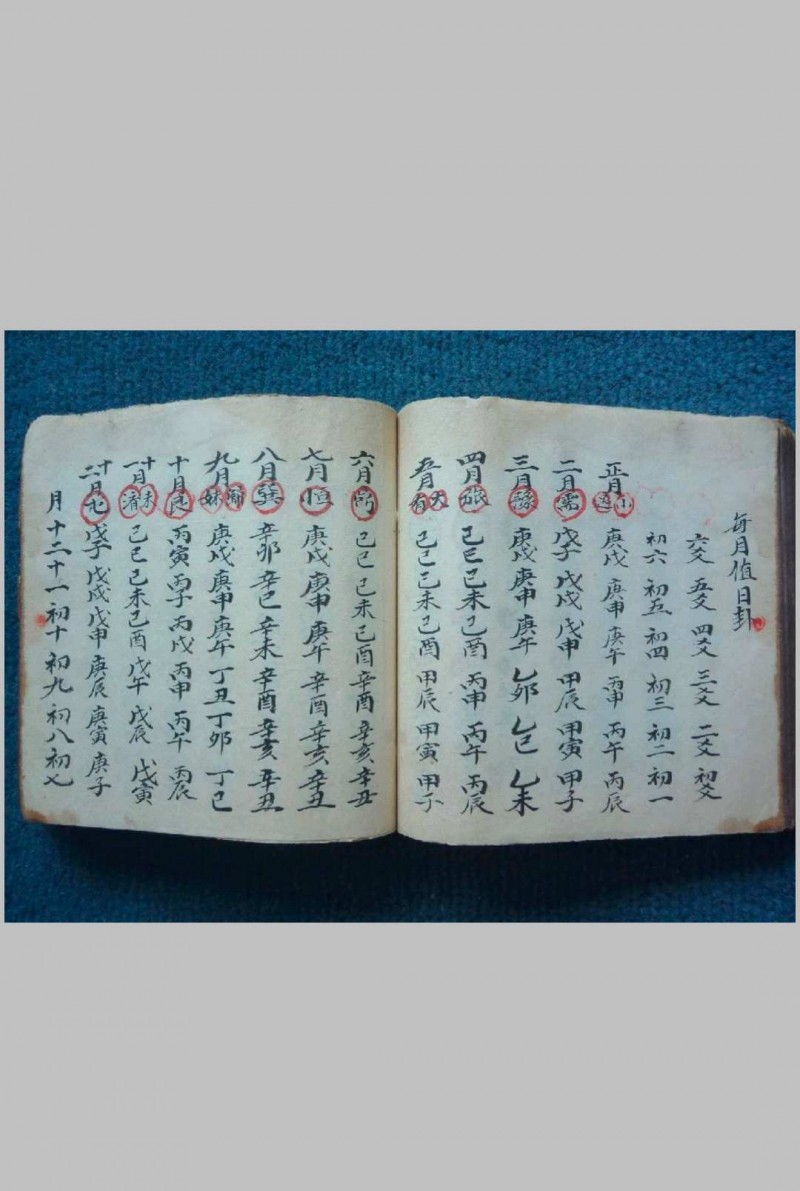 每月值日卦
六爻 五爻 四爻 三爻 二爻 初爻
初六 初五 初四 初三 初二 初一
正月 小过 庚戌 庚申 庚午 丙申 丙午 丙辰
二月 需 戊子 戊戌 戊申 甲辰 甲寅 甲子
三月 豫 庚戌 庚申 庚午 乙卯 乙巳 乙未
四月 旅 己巳 己未 己酉 丙申 丙午 丙辰
五月 大有 己巳 己未 己酉 甲辰 甲寅 甲子
六月 鼎 己巳 己未 己酉 辛酉 辛亥 辛丑
七月 恒 庚戌 庚申 庚午 辛酉 辛亥 辛丑
八月 巽 辛卯 辛巳 辛未 辛酉 辛亥 辛丑
九月 歸妹 庚戌 庚申 庚午 丁丑 丁卯 丁巳
十月 艮 丙寅 丙子 丙戌 丙申 丙午 丙辰
十一月 未 己巳 己未 己酉 戊午 戊辰 戊寅
十二月 屯 戊子 戊戌 戊申 庚辰 庚寅 庚子
月 十二 十一 初十 初九 初八 初七